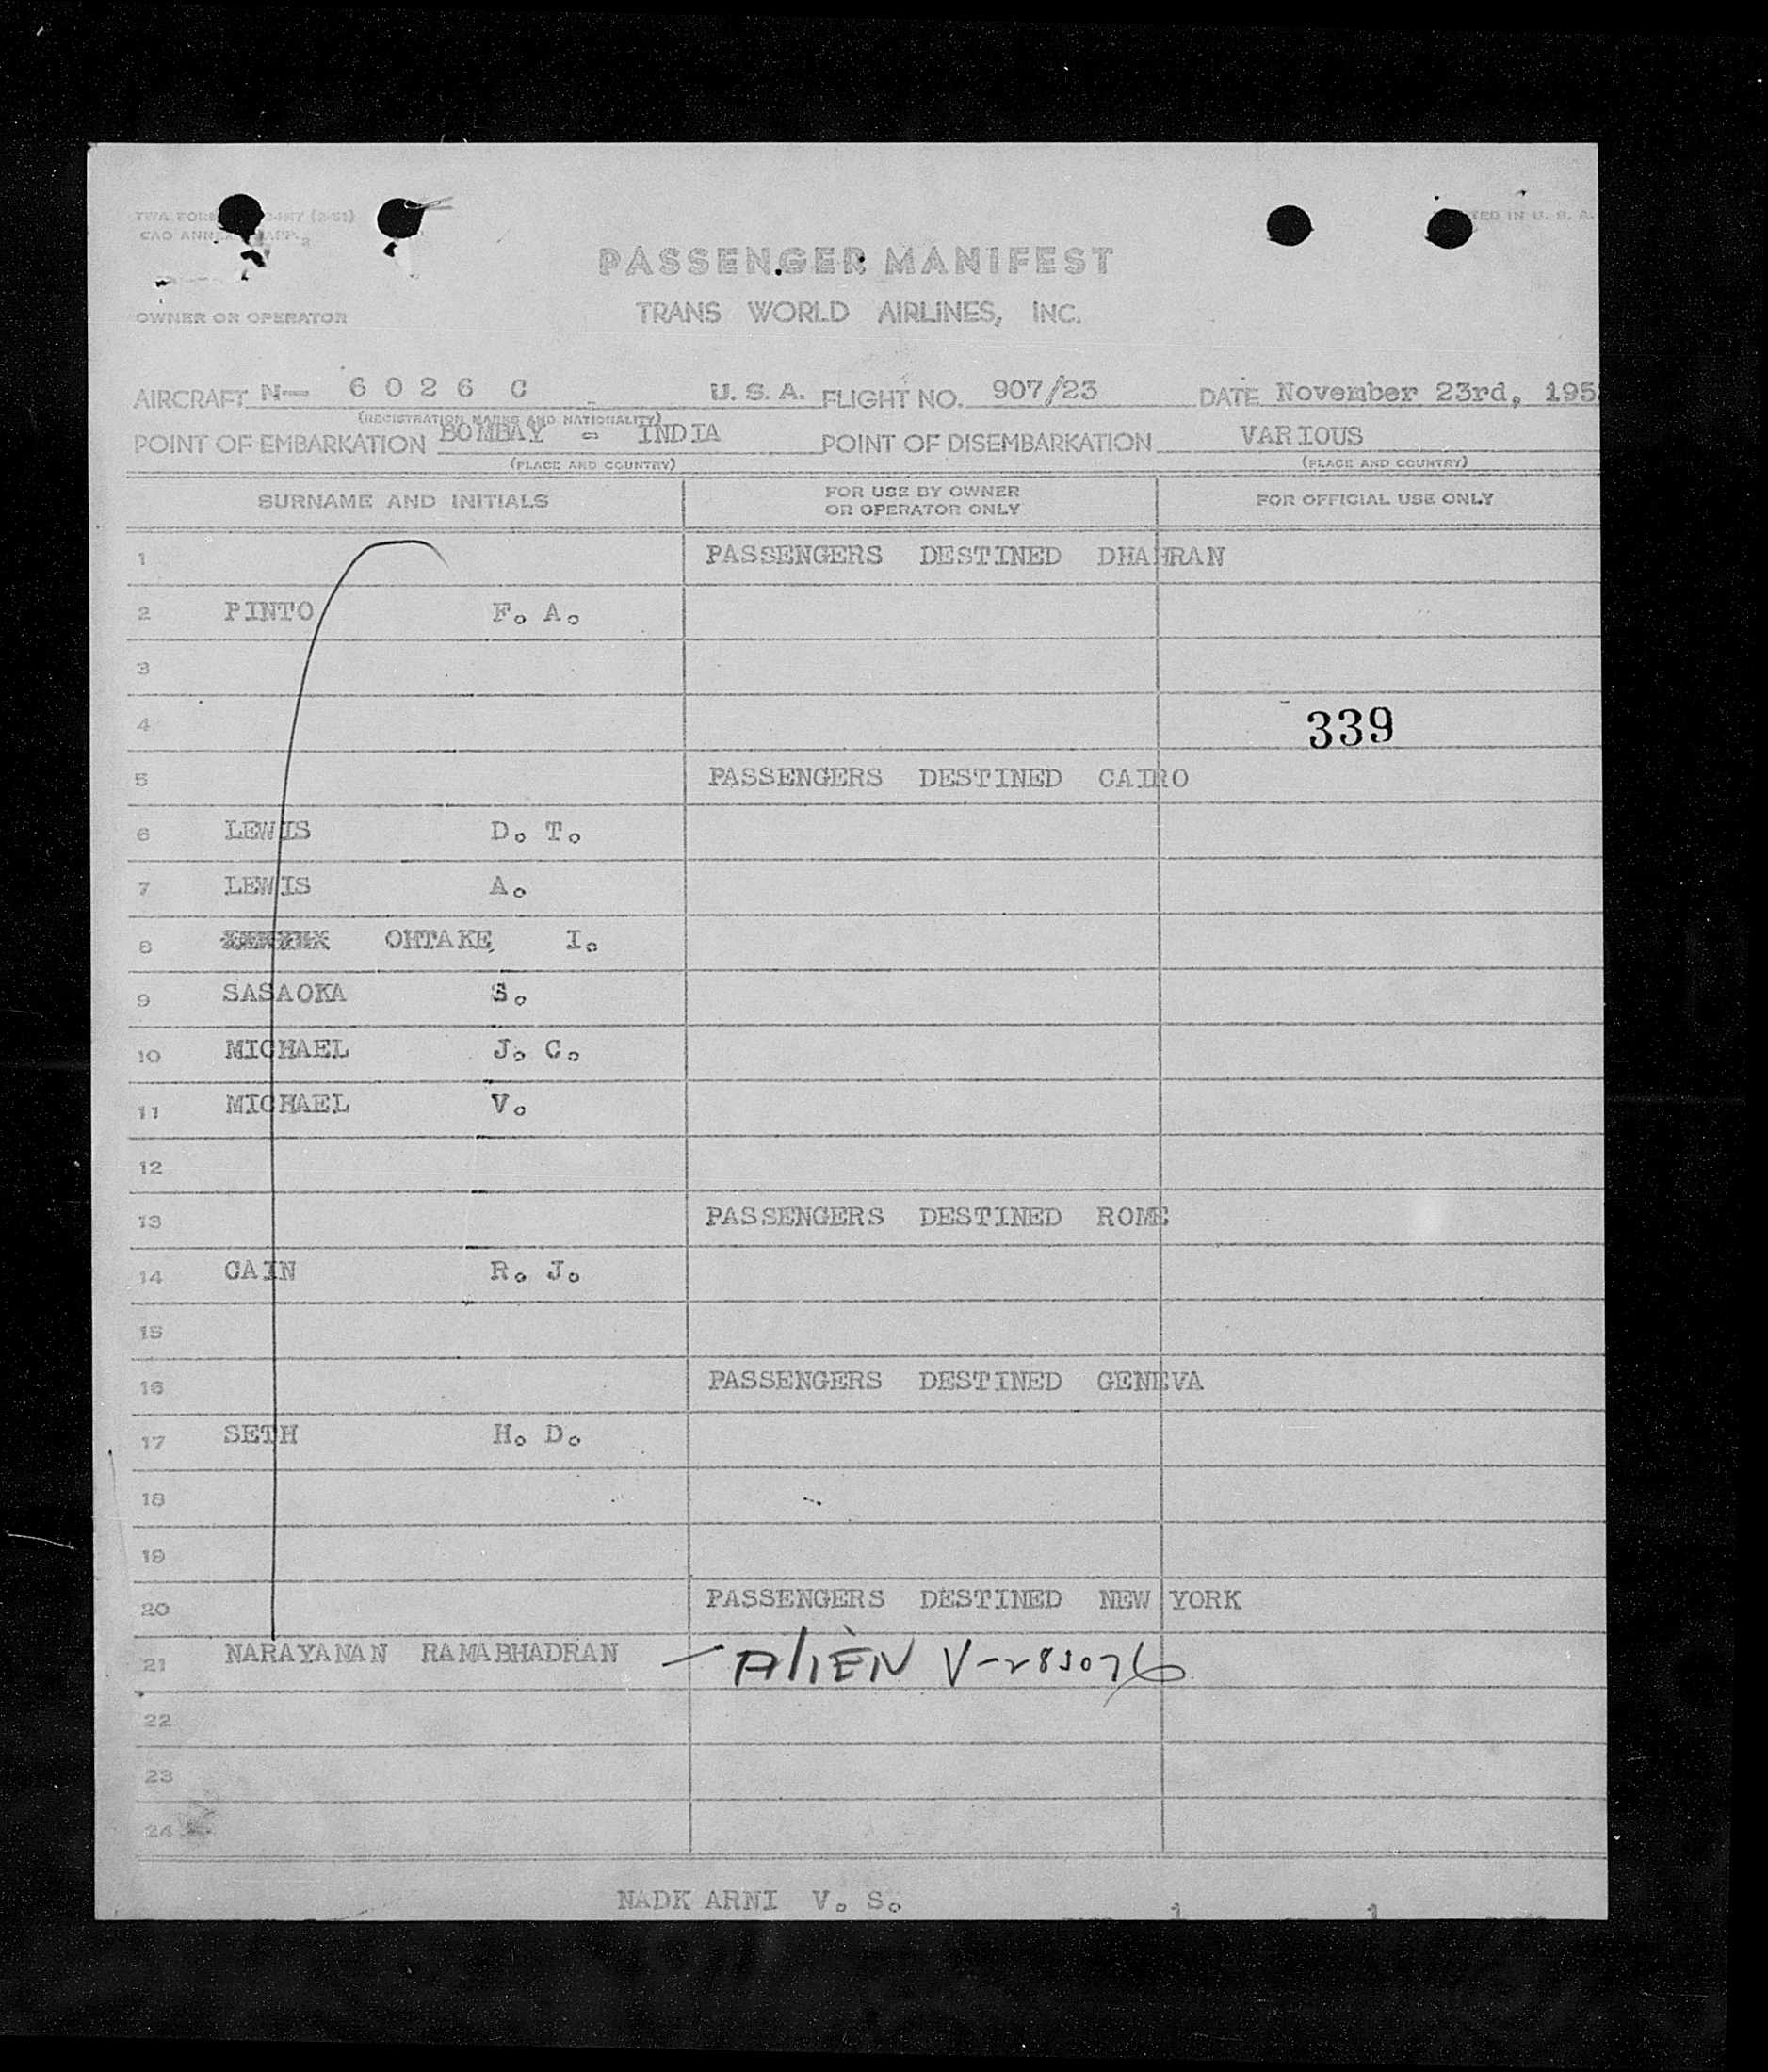 TWA FORM
CAO ANNEX APP. 2
TED IN U. S. A.
PASSENGER MANIFEST
OWNER OR OPERATOR
TRANS WORLD AIRLINES, INC.
AIRCRAFT N— 6 0 2 6 C U. S. A. FLIGHT NO. 907/23 DATE November 23rd, 195
(REGISTRATION MARKS AND NATIONALITY)
POINT OF EMBARKATION BOMBAY - INDIA POINT OF DISEMBARKATION VARIOUS
(PLACE AND COUNTRY) (PLACE AND COUNTRY)
SURNAME AND INITIALS FOR USE BY OWNER OR OPERATOR ONLY FOR OFFICIAL USE ONLY
1 PASSENGERS DESTINED DHAHRAN
2 PINTO F. A.
3
4 339
5 PASSENGERS DESTINED CAIRO
6 LEWIS D. T.
7 LEWIS A.
8 OHTAKE I.
9 SASAOKA S.
10 MICHAEL J. C.
11 MICHAEL V.
12
13 PASSENGERS DESTINED ROME
14 CAIN R. J.
15
16 PASSENGERS DESTINED GENEVA
17 SETH H. D.
18
19
20 PASSENGERS DESTINED NEW YORK
21 NARAYANAN RAMABHADRAN — ALIEN
22
23
24
NADKARNI V. S.
1 1